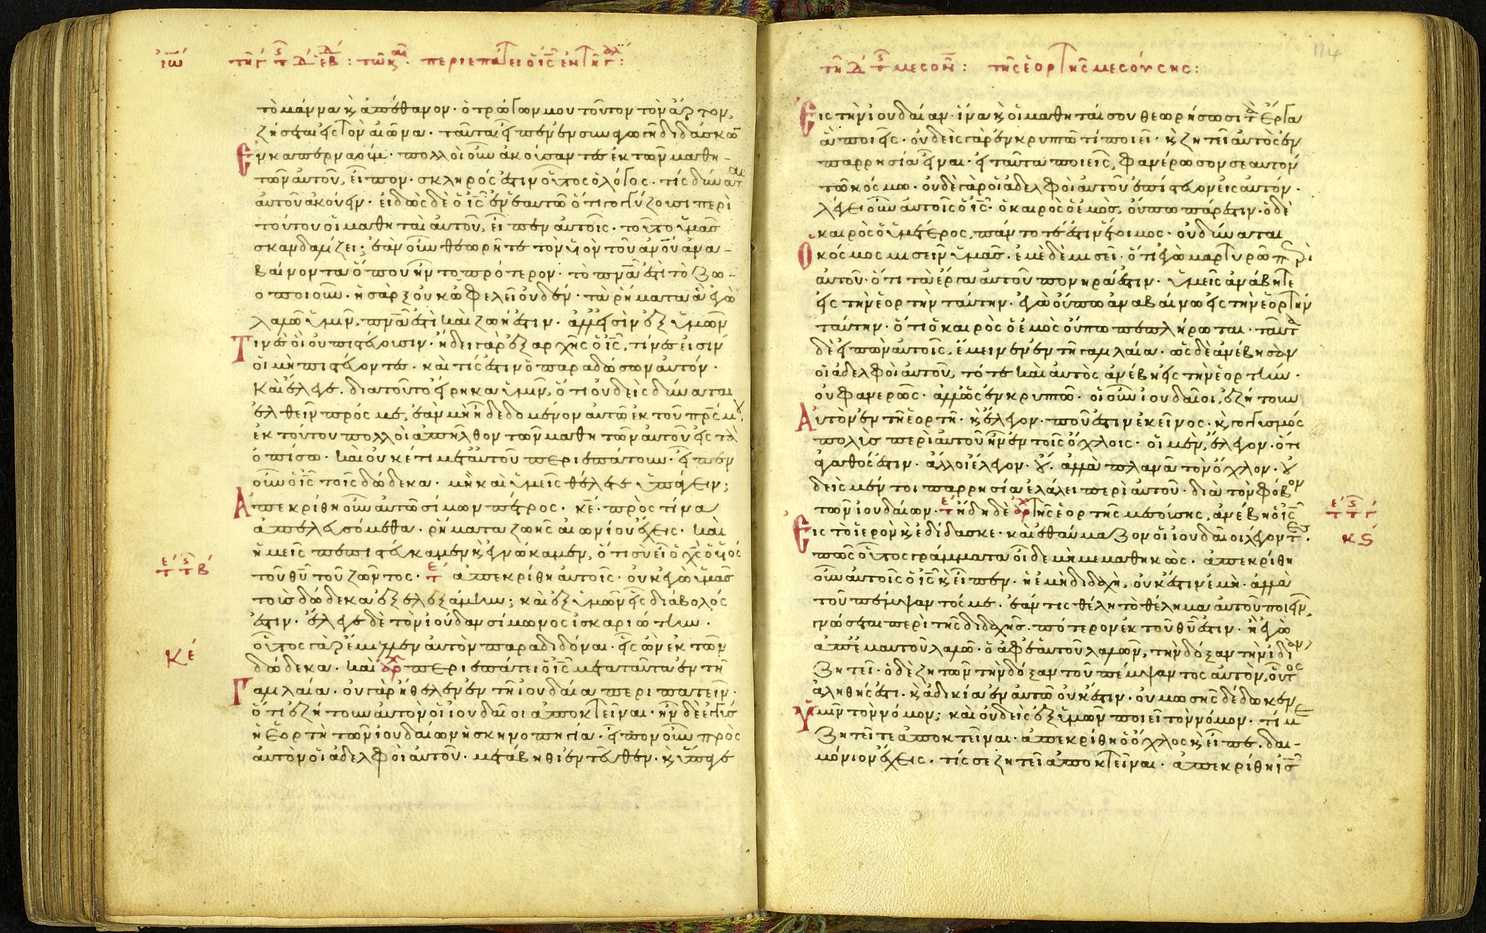 τὸ μάννα κ ἀπέθανον· ὁ τρώγων μου τοῦτον τὸν ἄρτον,
ζήσεται εἰς τὸν αἰῶνα· ταῦτα εἶπεν ἐν συναγωγῆ διδάσκων
Ἐν καπερναούμ· πολλοὶ οὖν ἀκούσαντες ἐκ τῶν μαθη-
τῶν αὐτοῦ, εἶπον· σκληρός ἐστιν οὗτος ὁ λόγος· τίς δύναται
αὐτοῦ ἀκούειν· εἰδὼς δὲ ὁ ις ἐν ἑαυτῶ ὅτι γογγύζουσι περὶ
τούτου οἱ μαθηταὶ αὐτοῦ, εἶπεν αὐτοῖς· τοῦτο ὑμᾶς
σκανδαλίζει; ἐὰν οὖν θεωρῆτε τὸν υἱὸν τοῦ ανου ἀνα-
βαίνοντα ὅπου ἦν τὸ πρότερον· τὸ πνα ἐστὶ τὸ ζωο-
οποιοῦν· ἡ σὰρξ οὐκ ὠφελεῖ οὐδέν· τὰ ῥήματα ἃ ἐγὼ
λαλῶ ὑμῖν, πνα ἐστὶ καὶ ζωή ἐστιν· ἀλλ εἰσὶν ἐξ ὑμῶν
Τινὲς οἳ οὐ πιστεύουσιν· ἤδει γὰρ ἐξ ἀρχῆς ὁ ις, τίνες εἰσὶν
οἱ μὴ πιστεύοντες· καὶ τίς ἐστιν ὁ παραδώσων αὐτόν·
Καὶ ἔλεγε· διατοῦτο εἴρηκα ὑμῖν, ὅτι οὐδεὶς δύναται
ἐλθεῖν πρός με, ἐὰν μὴ ἦ δεδομένον αὐτῶ ἐκ τοῦ πρς μου·
ἐκ τούτου πολλοὶ ἀπῆλθον τῶν μαθητῶν αὐτοῦ εἰς τὰ
ὀπίσω· καὶ οὐκέτι μετ αὐτοῦ περιεπάτουν· εἶπεν
οὖν ὁ ις τοῖς δώδεκα· μὴ καὶ ὑμεῖς θέλετε ὑπάγειν;
Ἀπεκρίθη οὖν αὐτῶ σίμων πέτρος· κε· πρὸς τίνα
ἀπελευσόμεθα· ῥήματα ζωῆς αἰωνίου ἔχεις· καὶ
ἡμεῖς πεπιστεύκαμεν κ ἐγνώκαμεν, ὅτι συ εἶ ὁ χς ὁ υἱὸς
τοῦ θυ τοῦ ζῶντος· ἀπεκρίθη αὐτοῖς· οὐκ ἐγὼ ὑμᾶς
τοὺς δώδεκα ἐξελεξάμην; καὶ ἐξ ὑμῶν εἷς διάβολός
ἐστιν· ἔλεγε δὲ τὸν ἰούδαν σίμωνος ἰσκαριώτην·
οὗτος γὰρ ἔμελλεν αὐτὸν παραδιδόναι· εἷς ὢν ἐκ τῶν
δώδεκα· καὶ περιεπάτει ὁ ις μετὰ ταῦτα ἐν τῆ
Γαλιλαία· οὐ γὰρ ἤθελεν ἐν τῆ ἰουδαία περιπατεῖν·
ὅτι ἐζήτουν αὐτὸν οἱ ἰουδαῖοι ἀποκτεῖναι· ἦν δὲ ἐγγὺς
ἡ ἑορτὴ τῶν ἰουδαίων ἡ σκηνοπηγία· εἶπον οὖν πρὸς
αὐτὸν οἱ ἀδελφοὶ αὐτοῦ· μετάβηθι ἐντεῦθεν· κ ὕπαγε
κε
τῆ δ μεσον: τῆς ἑορτῆς μεσούσης:
Εἰς τὴν ἰουδαίαν· ἵνα κ οἱ μαθηταί σου θεωρήσωσι τὰ ἔργα
ἃ ποιεῖς· οὐδεὶς γὰρ ἐν κρυπτῶ τί ποιεῖ· κ ζητεῖ αὐτὸς ἐν
παρρησία εἶναι· εἰ ταῦτα ποιεῖς, φανέρωσον σεαυτὸν
τῶ κόσμω· οὐδὲ γὰρ οἱ ἀδελφοὶ αὐτοῦ ἐπίστευον εἰς αὐτόν·
λέγει οὖν αὐτοῖς ὁ ις· ὁ καιρὸς ὁ ἐμὸς, οὔπω πάρεστιν· ὁ δὲ
καιρὸς ὁ ὑμέτερος, πάντοτέ ἐστιν ἕτοιμος· οὐ δύναται
Ὁ κόσμος μισεῖν ὑμᾶς· ἐμὲ δὲ μισεῖ· ὅτι ἐγὼ μαρτυρῶ περὶ
αὐτοῦ· ὅτι τὰ ἔργα αὐτοῦ πονηρά ἐστιν· ὑμεῖς ἀνάβητε
εἰς τὴν ἑορτὴν ταύτην· ἐγὼ οὔπω ἀναβαίνω εἰς τὴν ἑορτὴν
ταύτην· ὅτι ὁ καιρὸς ὁ ἐμὸς οὔπω πεπλήρωται· ταῦτα
δὲ εἰπὼν αὐτοῖς, ἔμεινεν ἐν τῆ γαλιλαία· ὡς δὲ ἀνέβησαν
οἱ ἀδελφοὶ αὐτοῦ, τότε καὶ αὐτὸς ἀνέβη εἰς τὴν ἑορτήν·
οὐ φανερῶς· ἀλλ ὡς ἐν κρυπτῶ· οἱ οὖν ἰουδαῖοι, ἐζήτουν
Αὐτὸν ἐν τῆ ἑορτῆ· κ ἔλεγον· ποῦ ἐστιν ἐκεῖνος· κ γογγυσμὸς
πολὺς περὶ αὐτοῦ ἦν ἐν τοῖς ὄχλοις· οἱ μὲν, ἔλεγον· ὅτι
ἀγαθός ἐστιν· ἄλλοι ἔλεγον· οὔ· ἀλλὰ πλανᾶ τὸν ὄχλον· οὐ
δεὶς μέντοι παρρησία ἐλάλει περὶ αὐτοῦ· διὰ τὸν φόβον
τῶν ἰουδαίων· ἤδη δὲ τῆς ἑορτῆς μεσούσης, ἀνέβη ὁ ις
Εἰς τὸ ἱερὸν κ ἐδίδασκε· καὶ ἐθαύμαζον οἱ ἰουδαῖοι λέγοντες·
πῶς οὗτος γράμματα οἶδε μὴ μεμαθηκώς· ἀπεκρίθη
οὖν αὐτοῖς ὁ ις κ εἶπεν· ἡ ἐμὴ διδαχὴ, οὐκ ἔστιν ἐμὴ· ἀλλὰ
τοῦ πέμψαντός με· ἐάν τις θέλη τὸ θέλημα αὐτοῦ ποιεῖν,
γνώσεται περὶ τῆς διδαχῆς· πότερον ἐκ τοῦ θυ ἐστιν· ἢ ἐγὼ
ἀπ ἐμαυτοῦ λαλῶ· ὁ ἀφ ἑαυτοῦ λαλῶν, τὴν δόξαν τὴν ἰδίαν
ζητεῖ· ὁ δὲ ζητῶν τὴν δόξαν τοῦ πέμψαντος αὐτὸν, οὗτος
ἀληθής ἐστι· κ ἀδικία ἐν αὐτῶ οὐκ ἔστιν· οὐ μωσῆς δέδωκεν
Ὑμῖν τὸν νόμον; καὶ οὐδεὶς ἐξ ὑμῶν ποιεῖ τὸν νόμον· τί με
ζητεῖτε ἀποκτεῖναι· ἀπεκρίθη ὁ ὄχλος κ εἶπε· δαι-
μόνιον ἔχεις· τίς σε ζητεῖ ἀποκτεῖναι· ἀπεκρίθη ις
κς
174